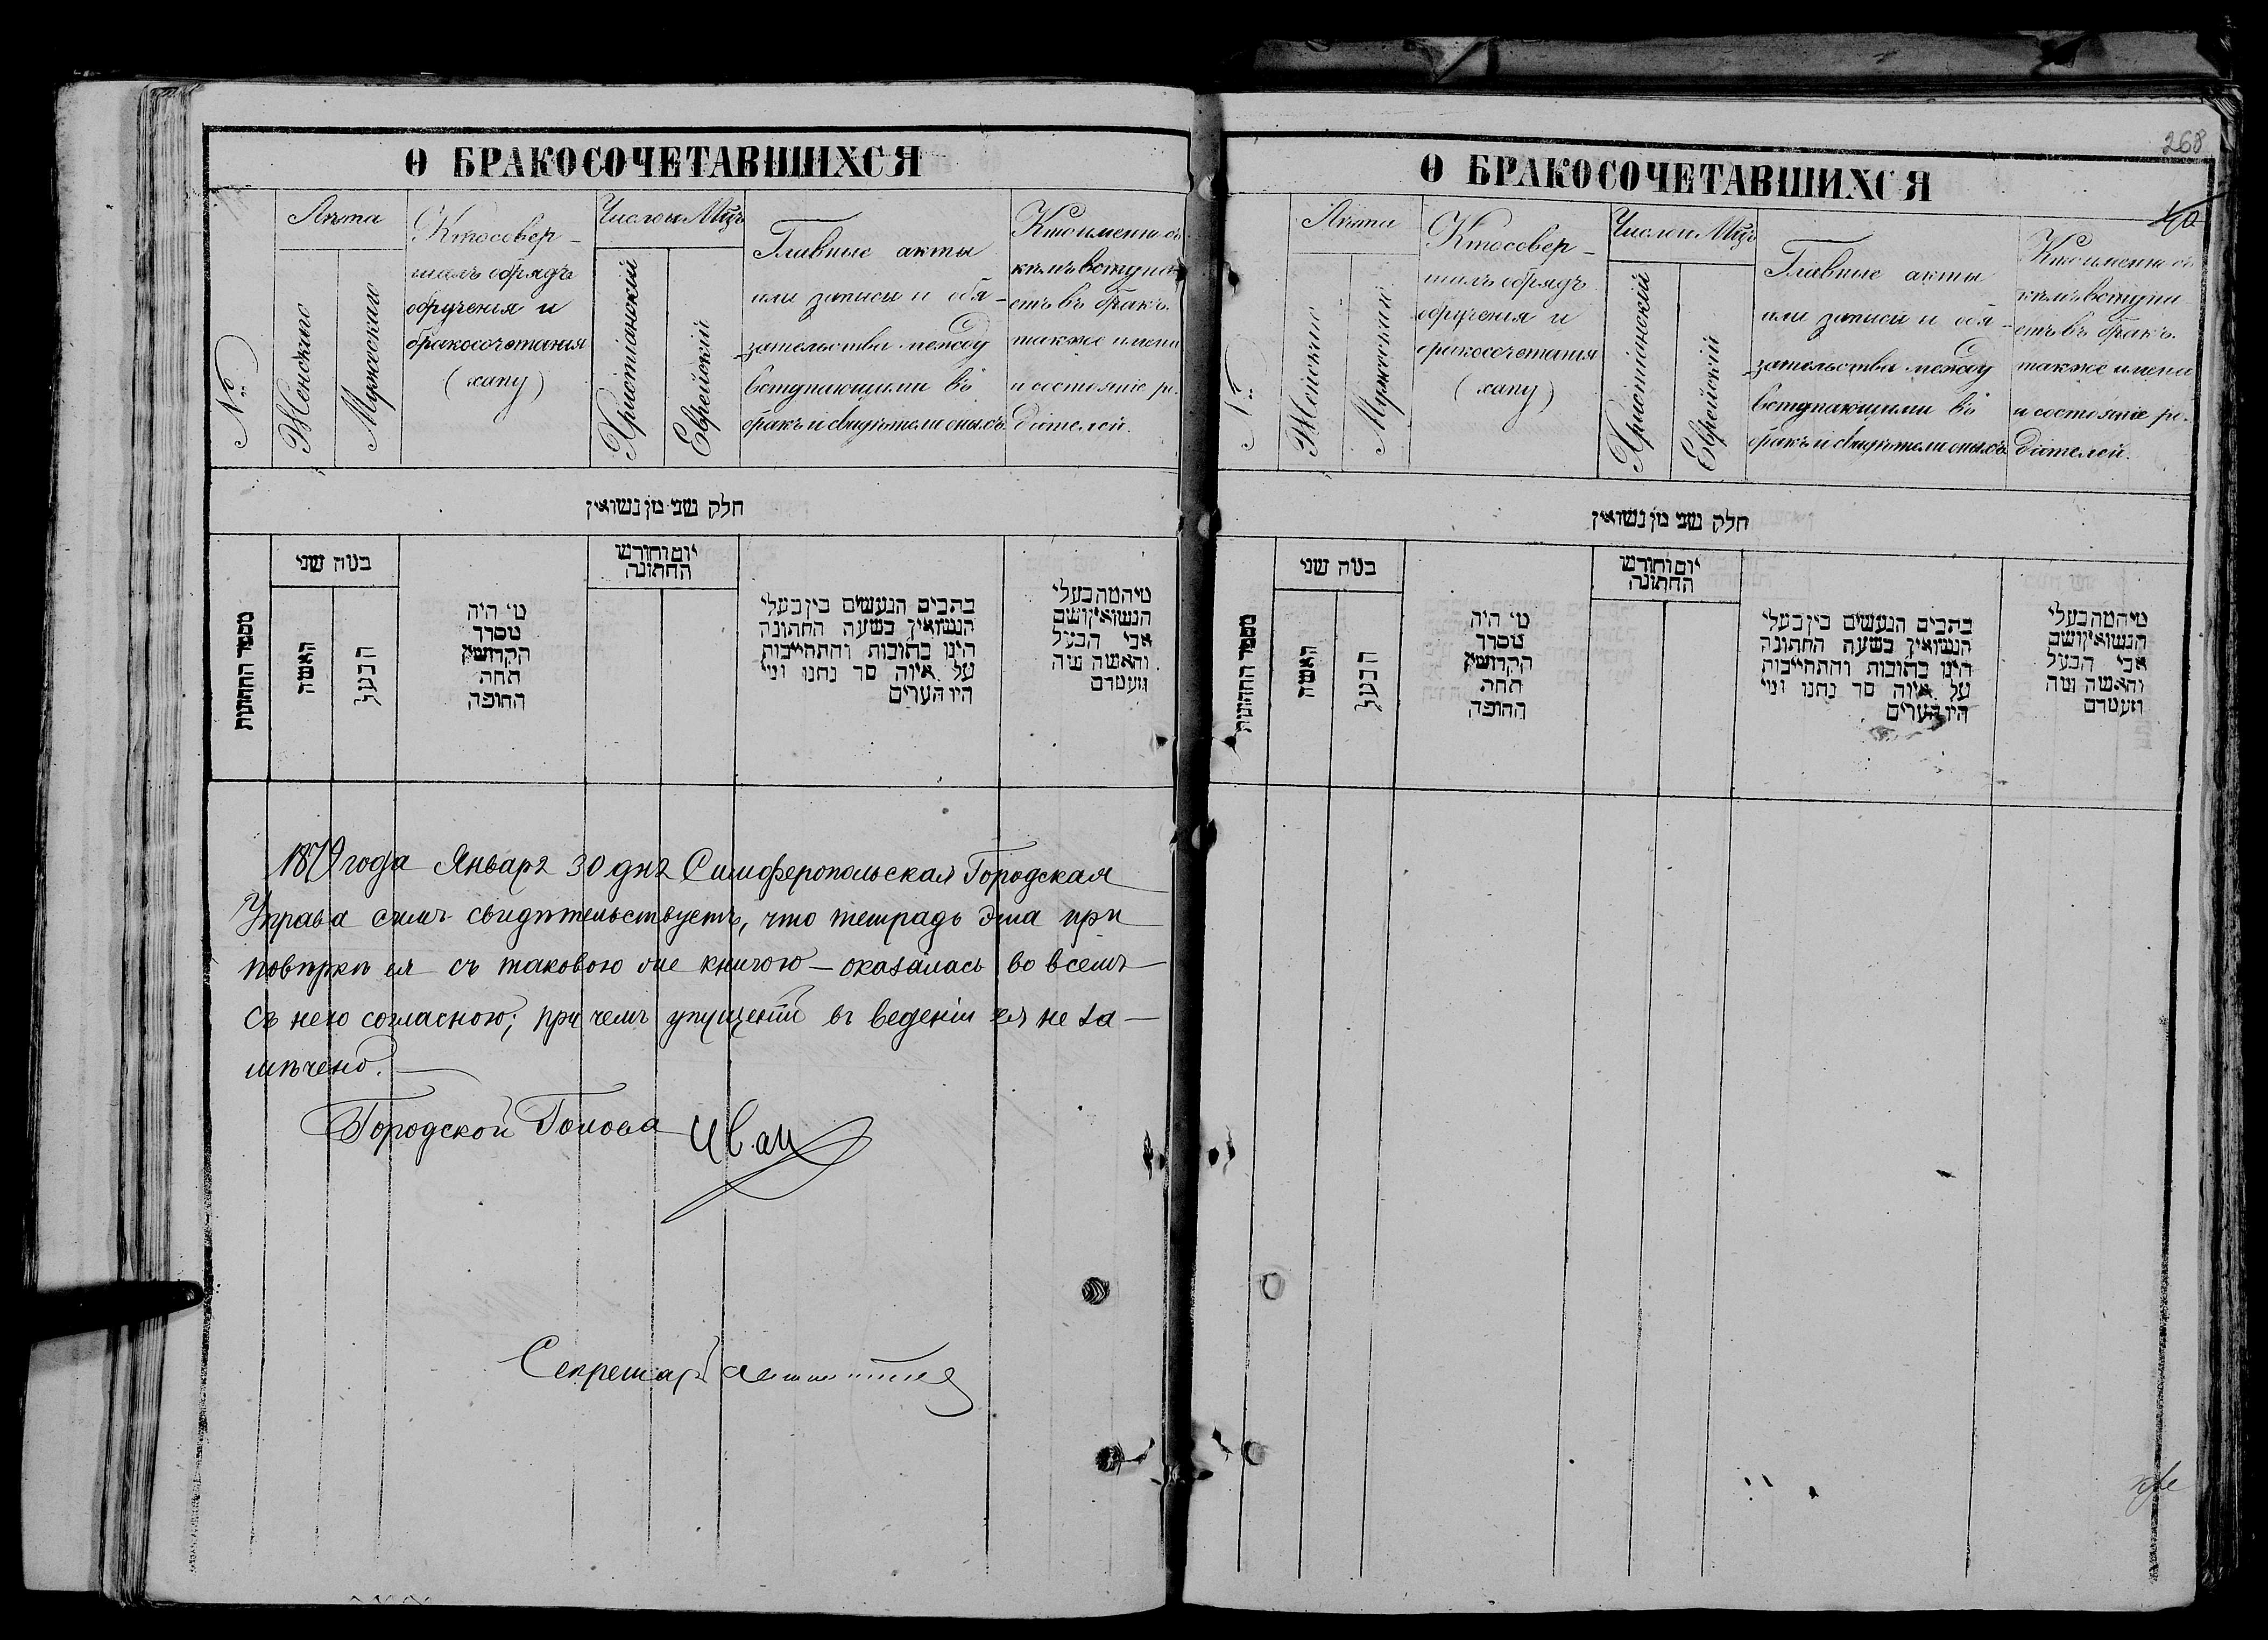 О БРАКОСОЧЕТАВШИХСЯ
№
Лѣта
Женскаго
Мужескаго
Кто совер-
шалъ обрядъ
обрученія и
бракосочетанія
(хапу)
Число и Мцъ
Христіанскій
Еврейскій
Главные акты
или записи и обя-
зательства между
вступающими въ
бракъ и свидѣтели оныхъ
Кто именно съ
кѣмъ вступа-
етъ въ бракъ.
также имена
и состояніе ро-
дителей.
חלק שני מן נשואין
מספר החתונות
כמה שני
האשה
הבעל
מי היה
מסדר
הקדושין
תחת
החופה
יום וחודש
החתונה
כתבים הנעשים בין בעלי
הנשואין בשעה החתונה
היינו כתובות והתחייבות
על איזה סך נתנו ומי
היו העדים
מי המה בעלי
הנשואין ושם
אבי הבעל
והאשה מה
מעמדם
1879 года Января 30 дня Симферопольская Городская
Управа симъ свидѣтельствуетъ, что тетрадь эта при
повѣркѣ ея съ таковою же книгою – оказалась во всемъ
съ нею согласною; при чемъ упущеній въ веденіи ея не за-
мѣчено.
Городской Голова Иван
Секретарь
268
40
О БРАКОСОЧЕТАВШИХСЯ
№
Лѣта
Женскаго
Мужескаго
Кто совер-
шалъ обрядъ
обрученія и
бракосочетанія
(хапу)
Число и Мцъ
Христіанскій
Еврейскій
Главные акты
или записи и обя-
зательства между
вступающими въ
бракъ и свидѣтели оныхъ
Кто именно съ
кѣмъ вступа-
етъ въ бракъ.
также имена
и состояніе ро-
дителей.
חלק שני מן נשואין
מספר החתונות
כמה שני
האשה
הבעל
מי היה
מסדר
הקדושין
תחת
החופה
יום וחודש
החתונה
כתבים הנעשים בין בעלי
הנשואין בשעה החתונה
היינו כתובות והתחייבות
על איזה סך נתנו ומי
היו העדים
מי המה בעלי
הנשואין ושם
אבי הבעל
והאשה מה
מעמדם